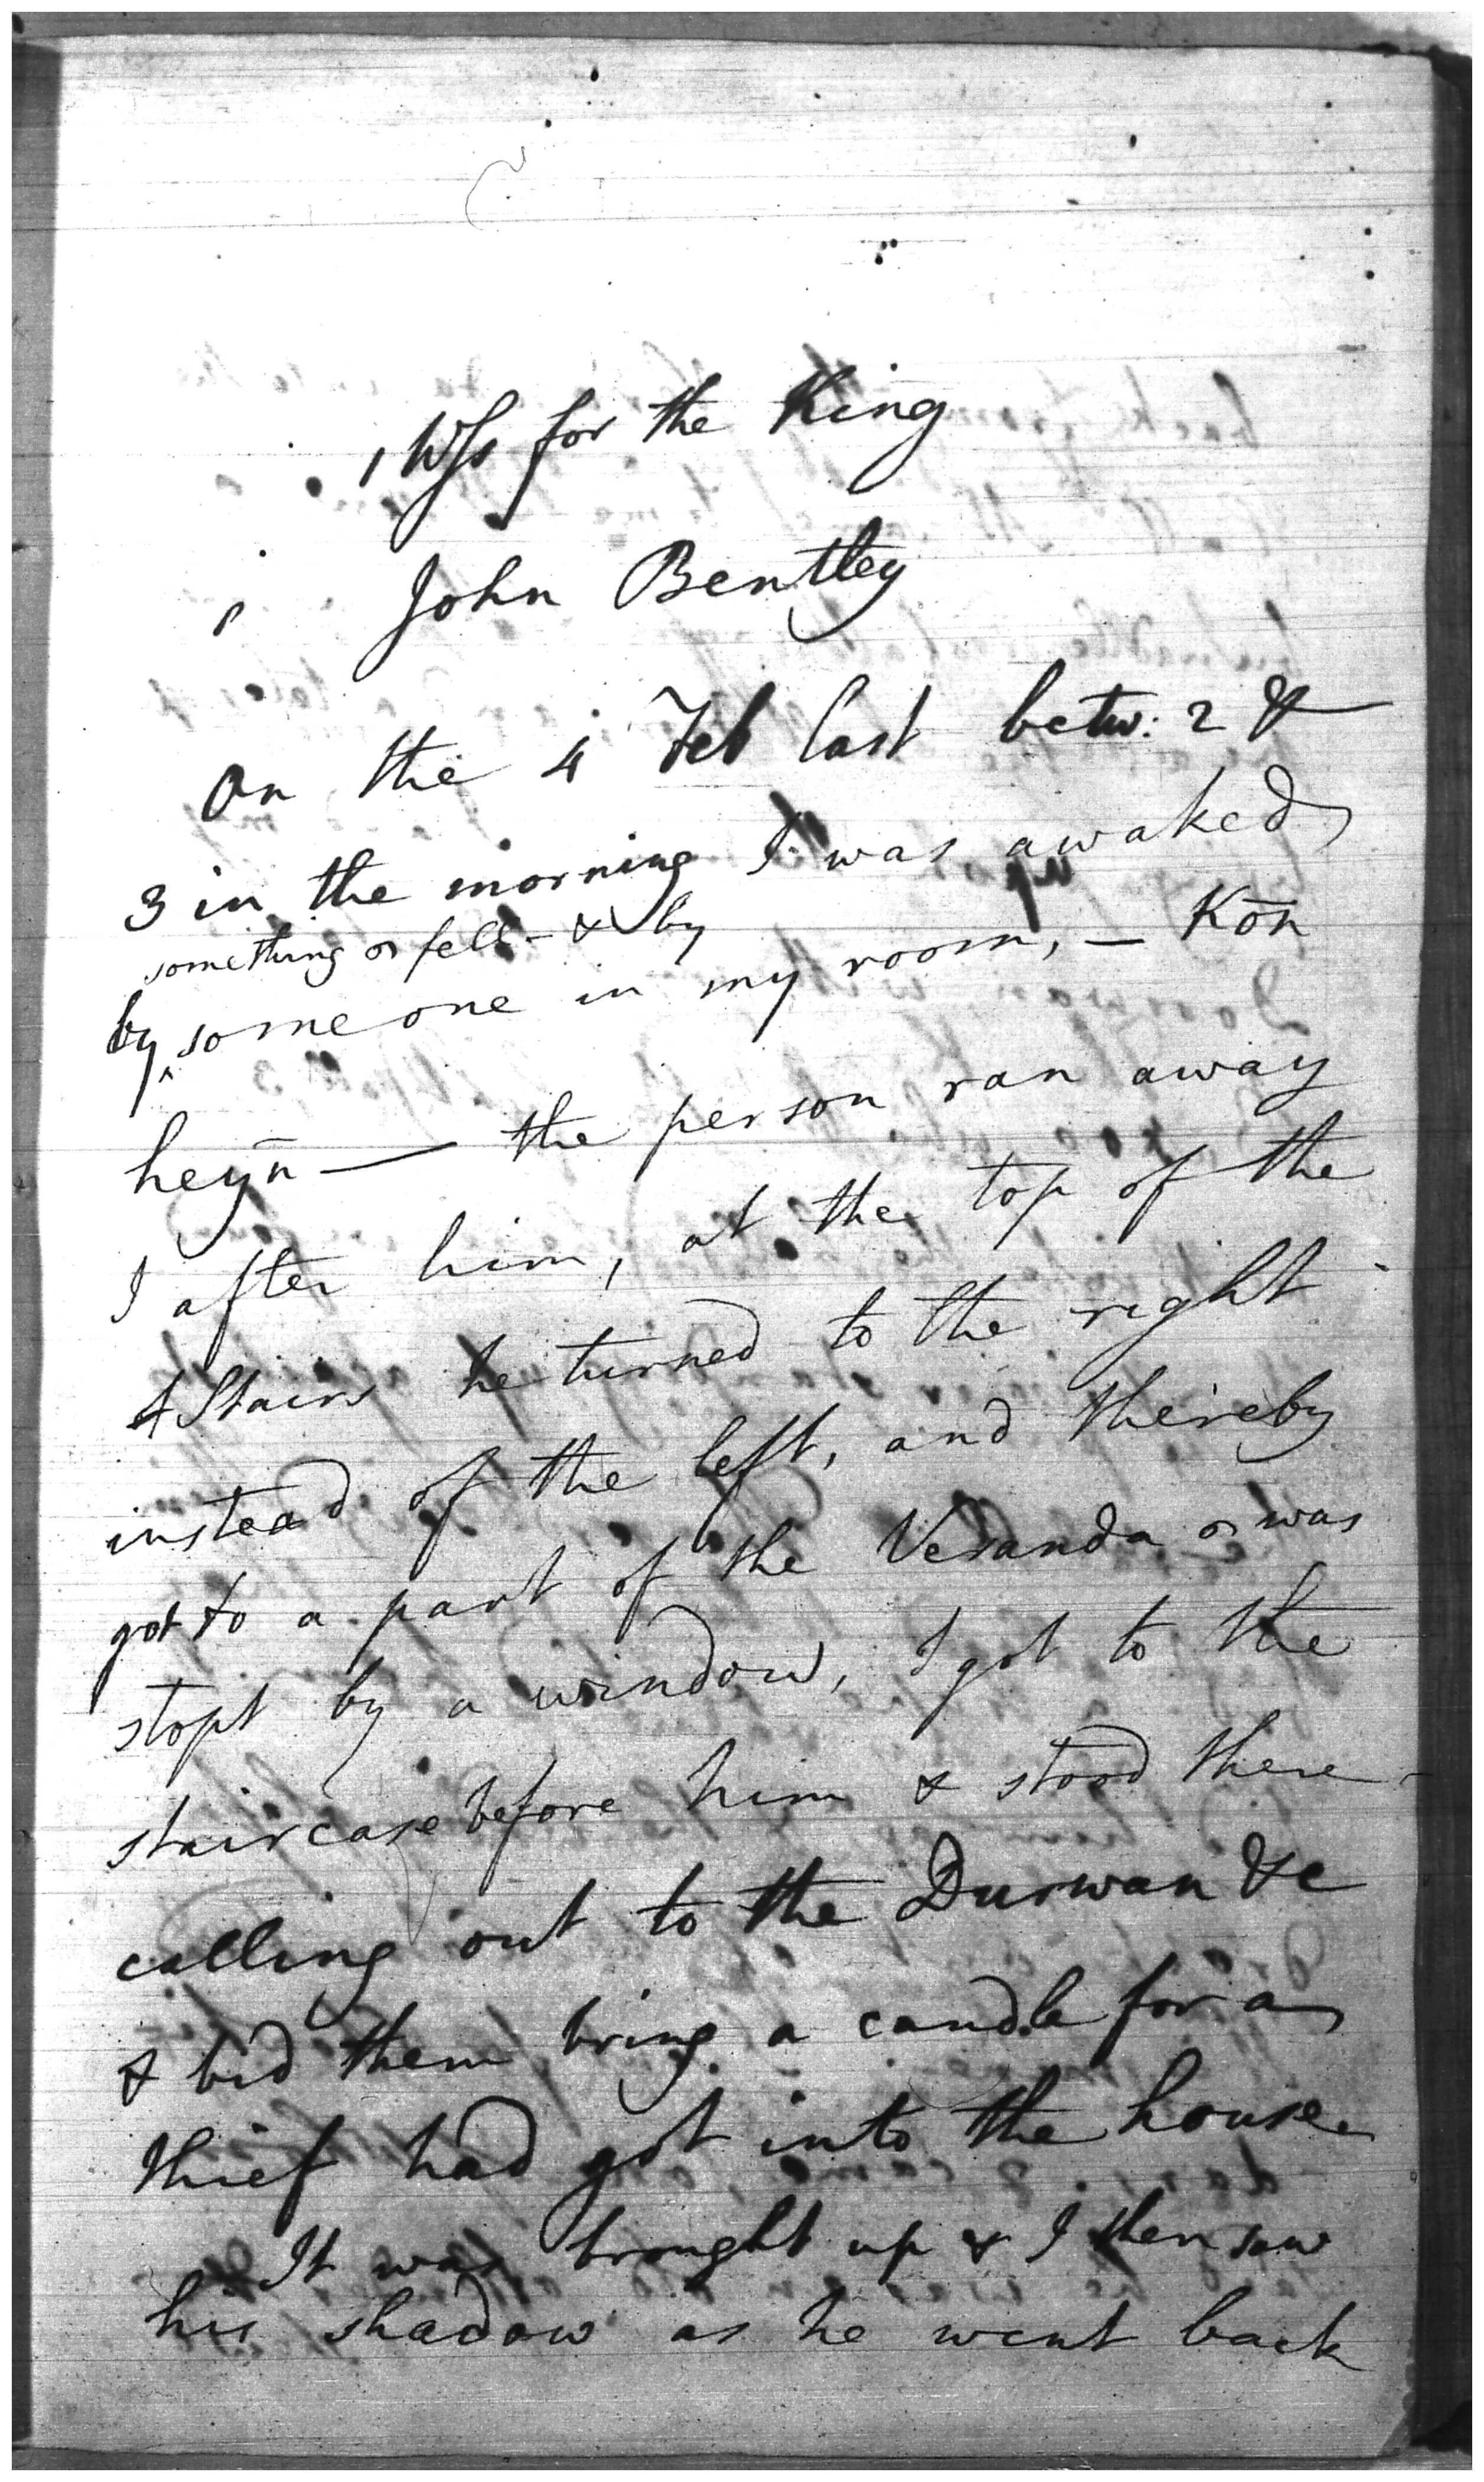 1 Wss for the King
John Bentley
On the 4 Feb last betw: 2 &
3 in the morning I was awaked
something or fell - & by
by ^ some one in my room, — Kōn
heyn̄ — the person ran away
I after him, at the top of the
4 Stairs he turned to the right
instead of the left, and thereby
got to a part of the Veranda or was
stopt by a window, I got to the
staircase before him & stood there
calling out to the Durwan &c
& bid them bring a candle for a
thief had got into the house
It was brought up & I then saw
his shadow as he went back